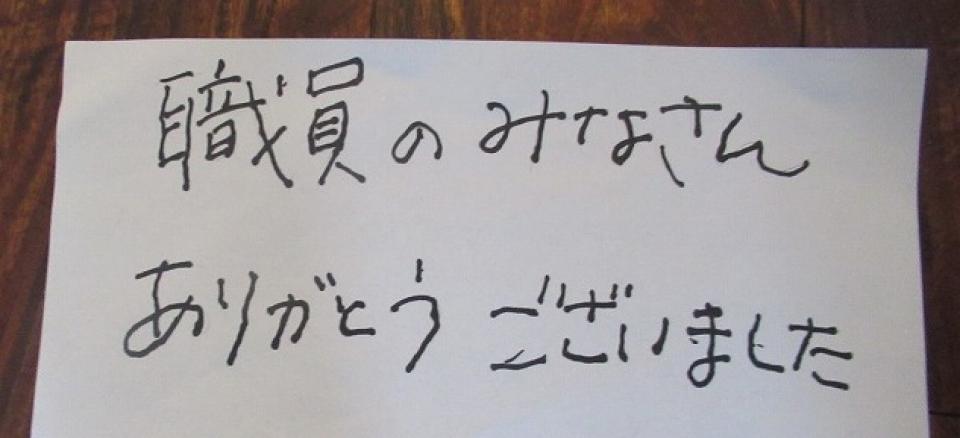 職員のみなさん
ありがとうございました